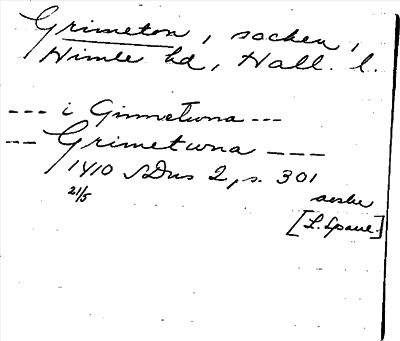 Grimeton, socken,
Himle hd, Hall. l.
--- i Grimetuna ---
-- Grimetuna ---
1410 SDns 2, s. 301
21/5
avskr
[L. Spaue.]